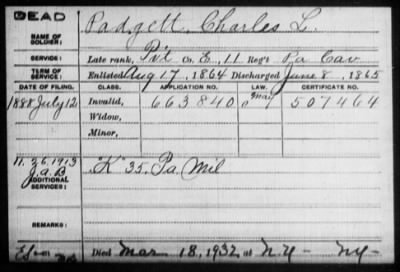 DEAD
Padgett, Charles L.
NAME OF SOLDIER:
SERVICE: Late rank, Pvt Co. E, 11 Reg't Pa Cav
TERM OF SERVICE: Enlisted Aug 17, 1864 Discharged June 8, 1865
DATE OF FILING. CLASS. APPLICATION NO. LAW. CERTIFICATE NO.
1888 July 12 Invalid, 663840 507464
Widow,
Minor,
11.26.1913
J.a.B.
ADDITIONAL SERVICES:
"K" 35 Pa Mil
REMARKS:
Died Mar 18, 1932, at N.Y- NY-